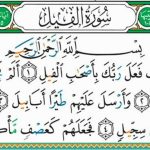 سُورَةُ الْفِيلِ
بِسْمِ اللَّهِ الرَّحْمَٰنِ الرَّحِيمِ
فَعَلَ رَبُّكَ بِأَصْحَٰبِ الْفِيلِ ١ أَلَمْ
٢ وَأَرْسَلَ عَلَيْهِمْ طَيْرًا أَبَابِيلَ ٣
سِجِّيلٍ ٤ فَجَعَلَهُمْ كَعَصْفٍ